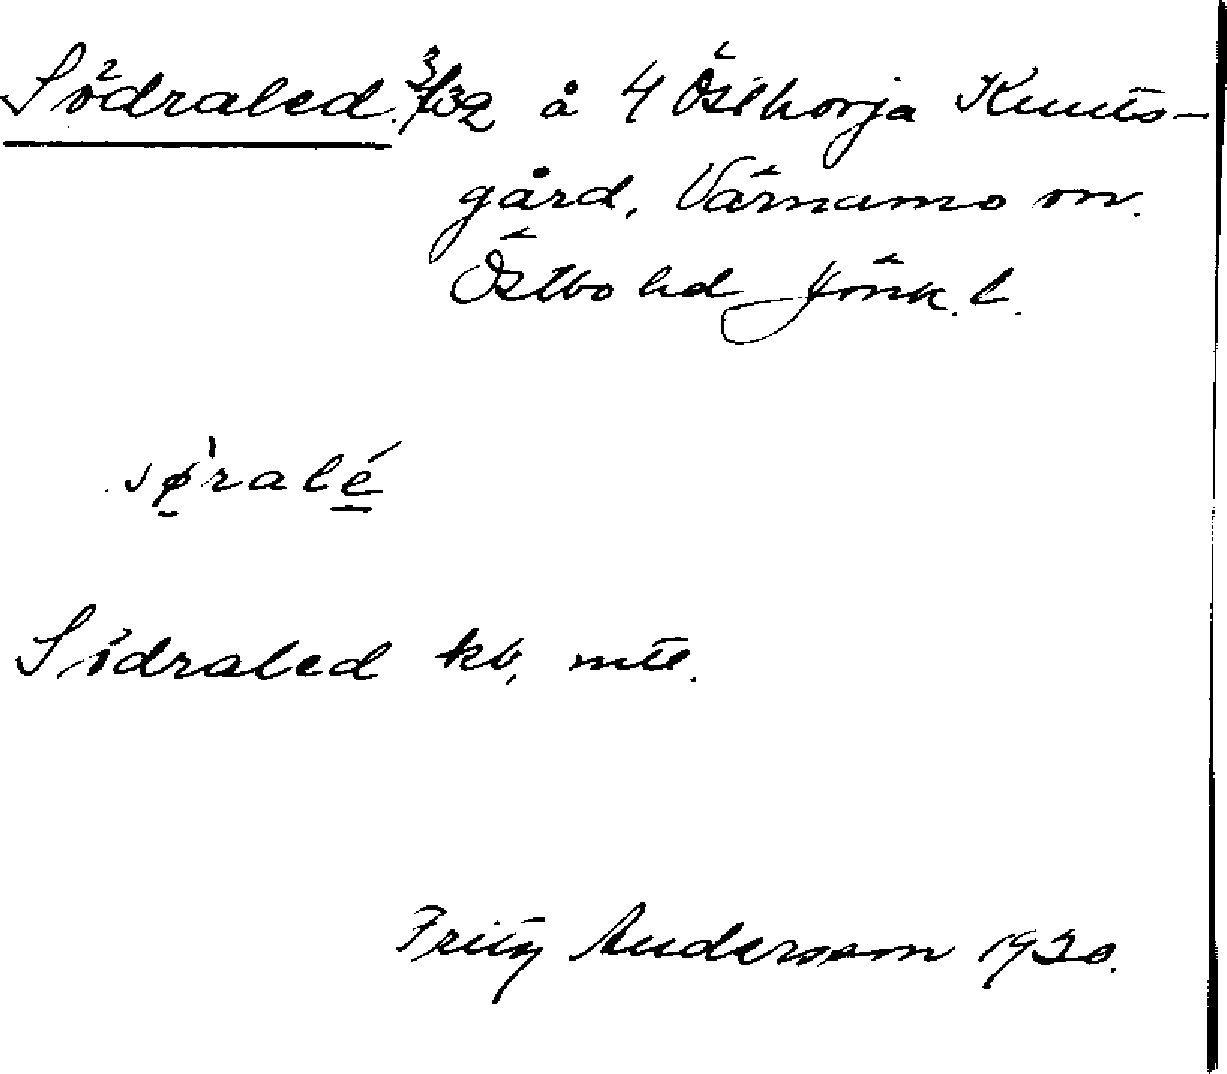 Södraled. 3/32 å 4 Östhorja Knuts-
gård, Värnamo sn.
Östbo hd Jönk. l.
sø'ralé
Södraled kb, mtl.
Fritz Andersson 1930.